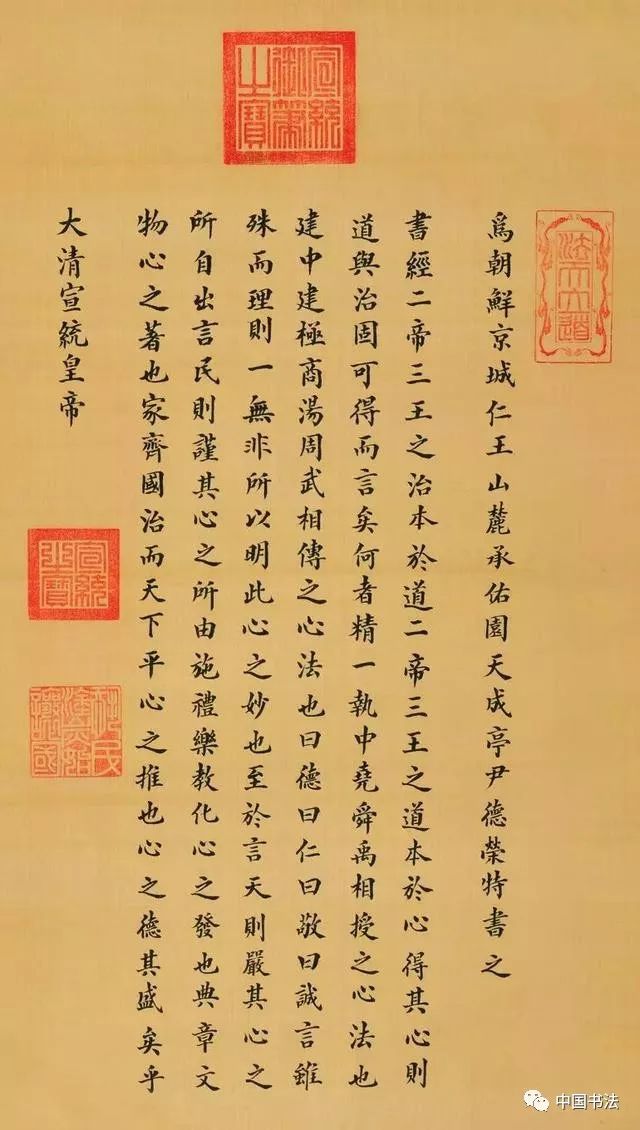 宣統御筆之寶
法天立道
為朝鮮京城仁王山麓承佑園天成亭尹德榮特書之
書經二帝三王之治本於道二帝三王之道本於心得其心則
道與治固可得而言矣何者精一執中堯舜禹相授之心法也
建中建極商湯周武相傳之心法也曰德曰仁曰敬曰誠言雖
殊而理則一無非所以明此心之妙也至於言天則嚴其心之
所自出言民則謹其心之所由施禮樂教化心之發也典章文
物心之著也家齊國治而天下平心之推也心之德其盛矣乎
大清宣統皇帝
宣統之寶
中国书法